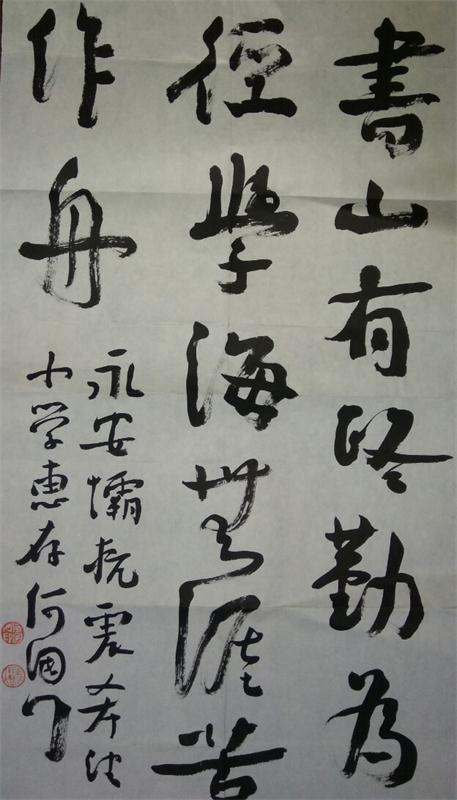 書山有路勤為
徑學海無涯苦
作舟
永安壩抗震希望
小学惠存何國